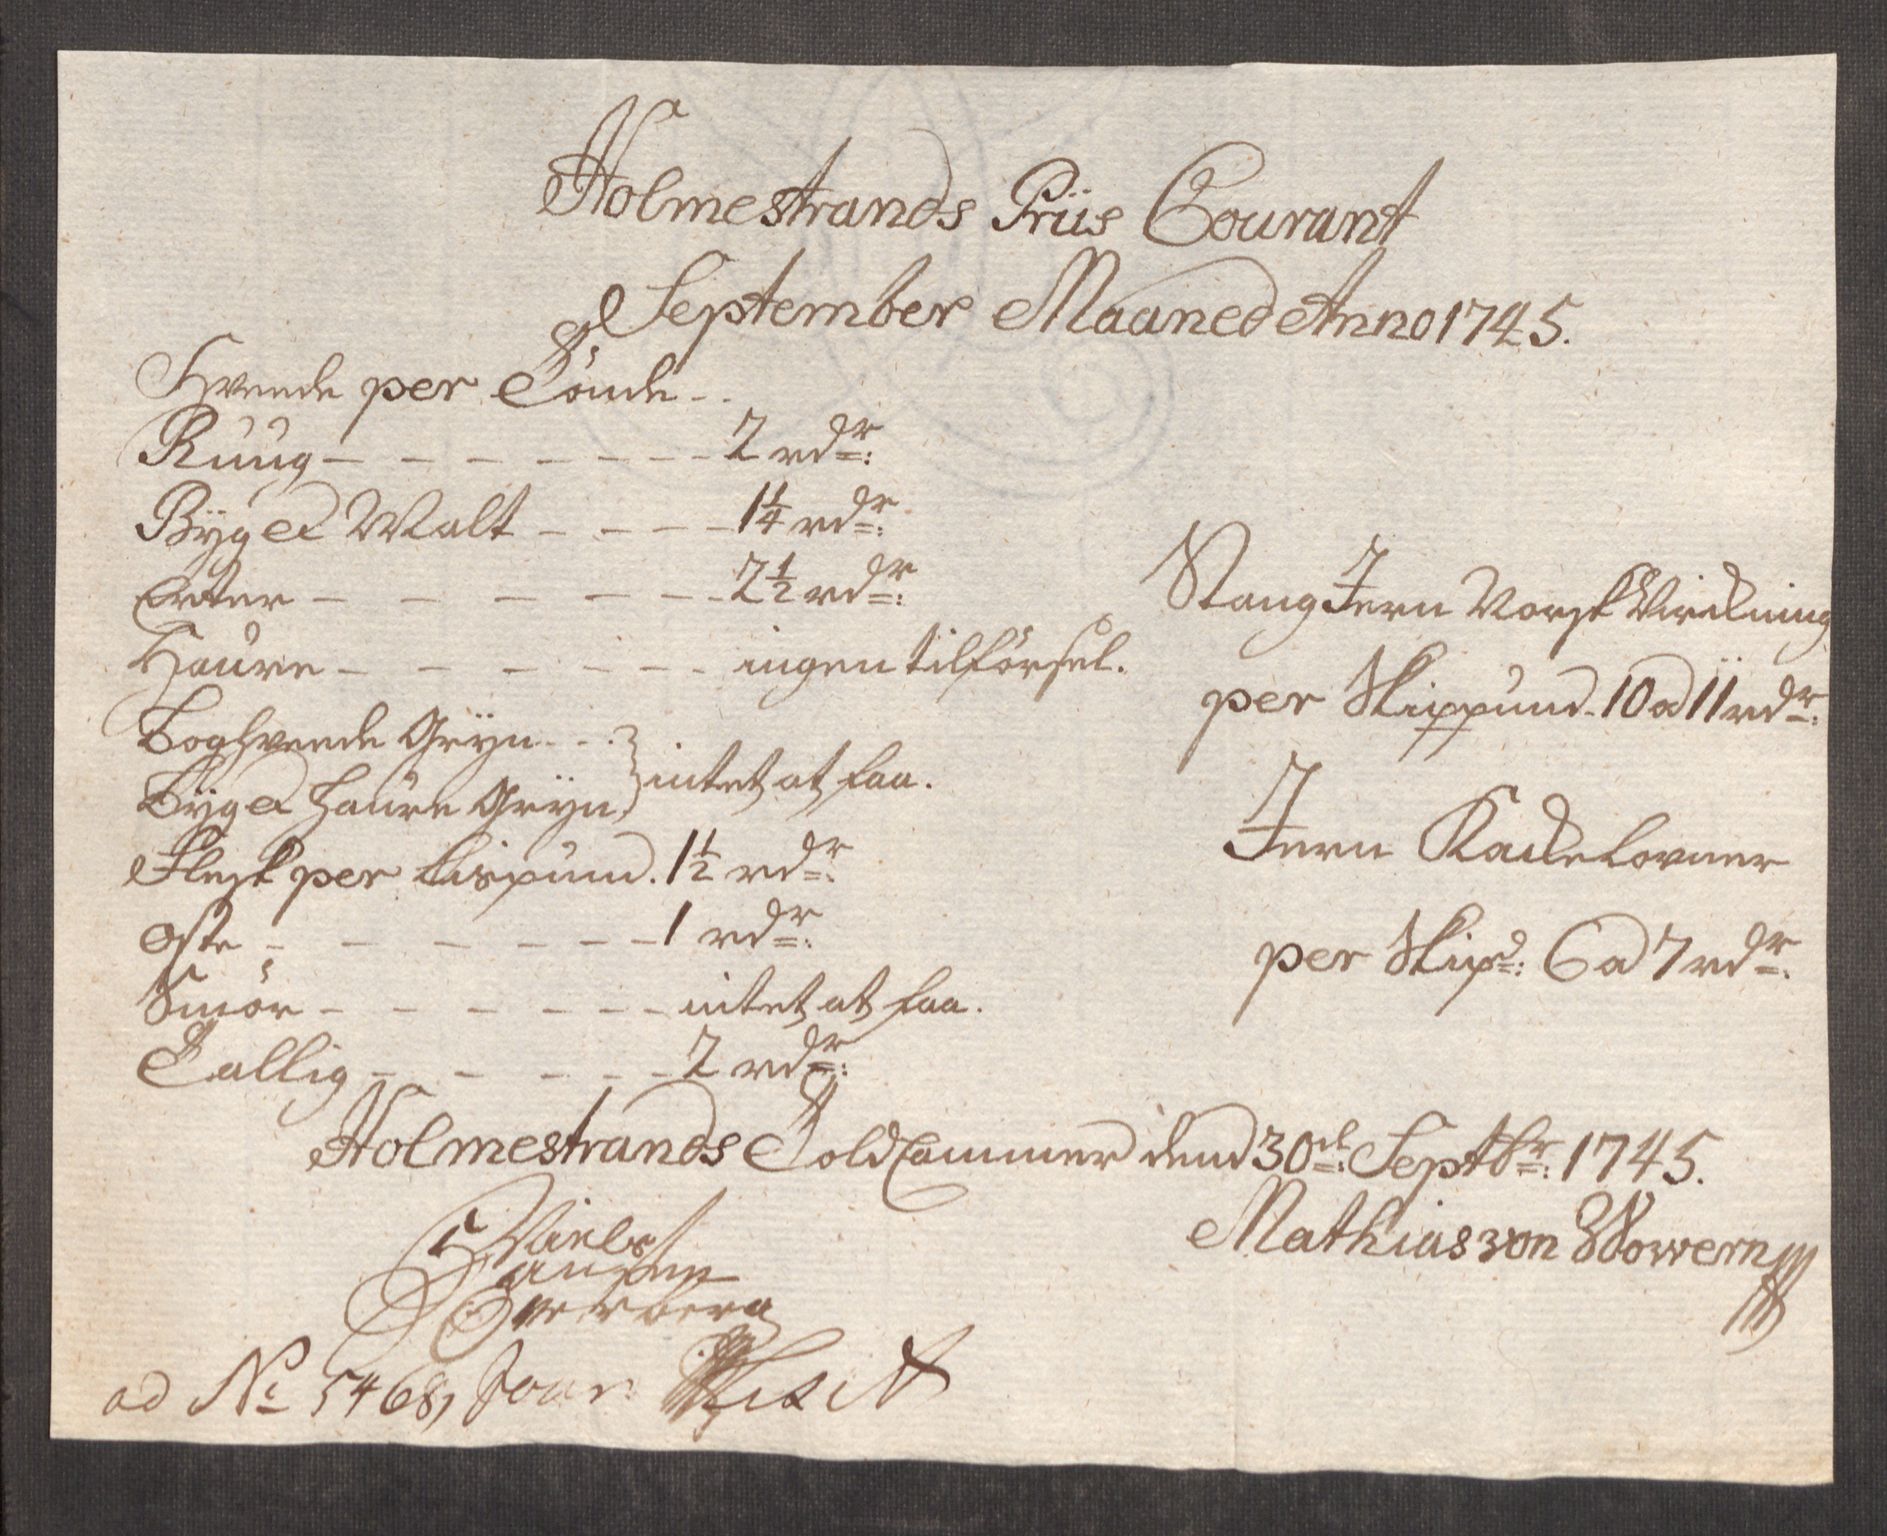 Holmestrands Priis Courant
September Maaned Anno 1745.
Hveede per Tönde
Ruug 2 rdr:
Byg et Malt 1¼ rdr:
Erter 2½ rdr:
Haure ingen tilförsel.
Boghveede Gryn
Byg et Haure Gryn } intet at faa.
Flesk per Lispund. 1½ rdr:
Oste 1 rdr:
Smör intet at faa.
Tallig 2 rdr:
Stang Jern Norsk Virckning
per Skippund 10 a 11 rdr:
Jern Kackelovner
per Skipd: 6 a 7 rdr:
Holmestrands Told Cammer dend 30de: Septbr: 1745.
Niels
Mathias von Wowern
ad No 5468, Jour: